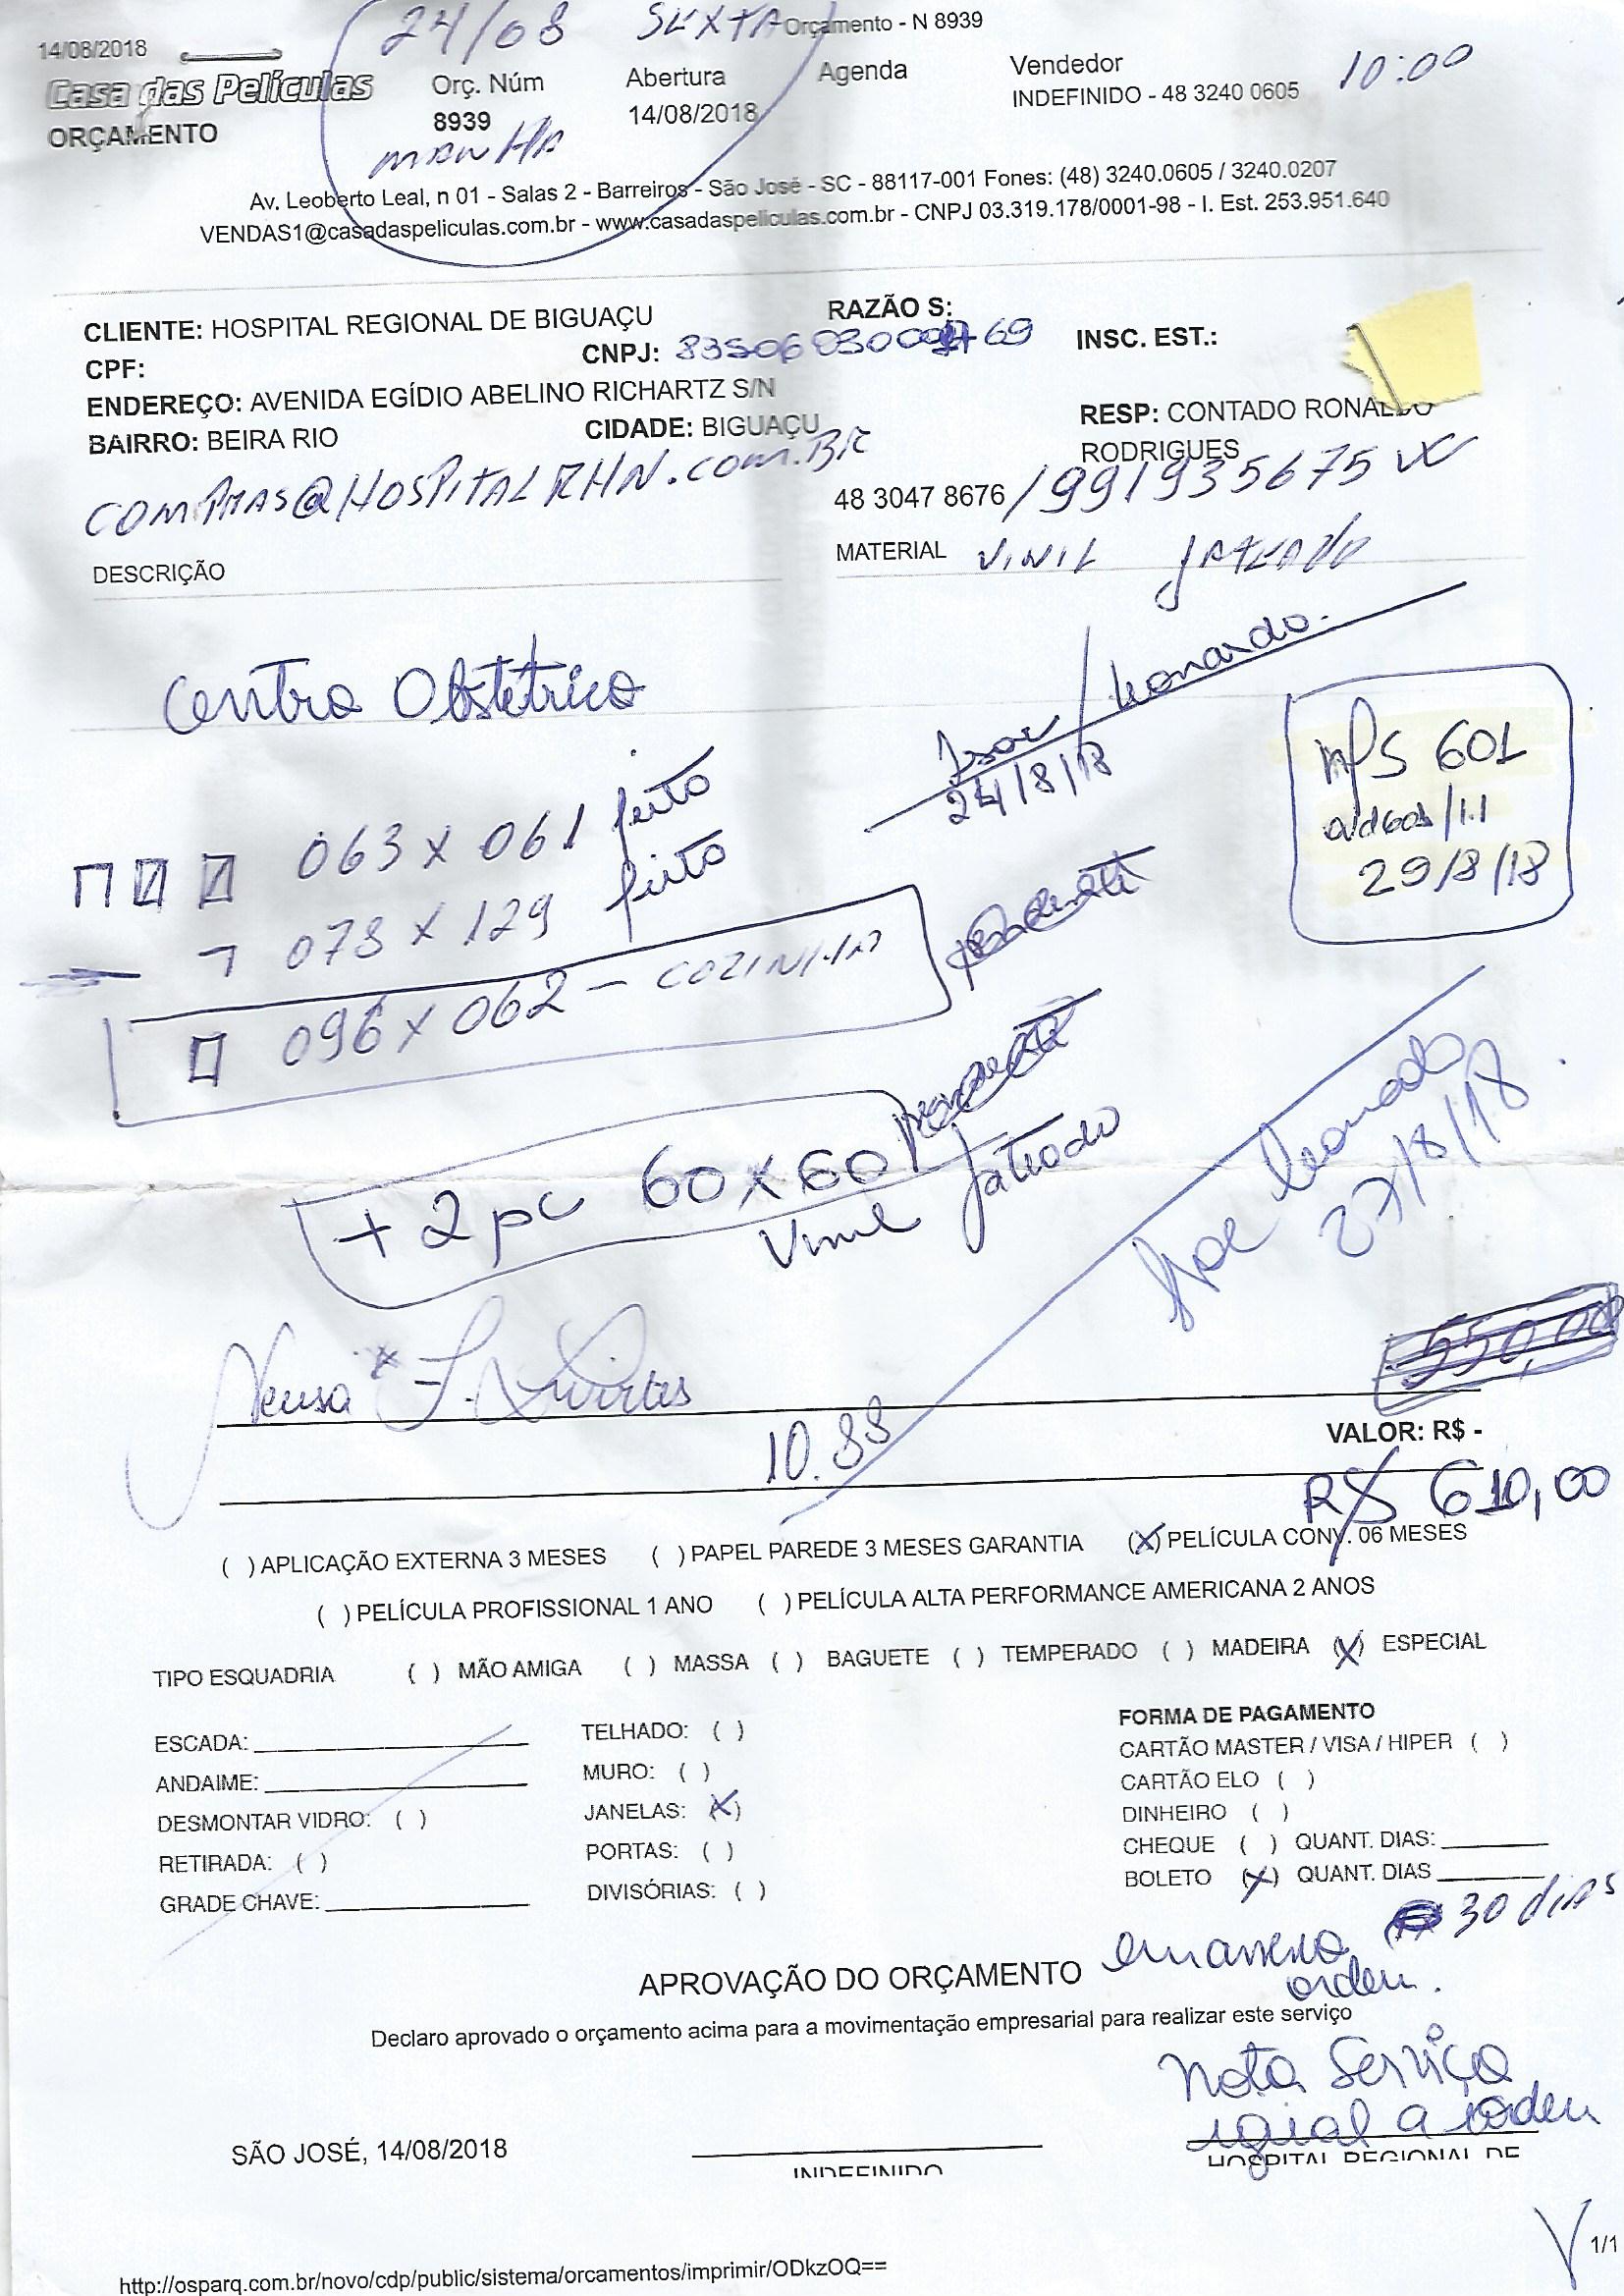 24/08 SEXTA
14/08/2018
Orçamento - N 8939
Casa das Películas
ORÇAMENTO
Orç. Núm
8939
MANHA
Abertura
14/08/2018
Agenda
Vendedor
INDEFINIDO - 48 3240 0605
10:00
Av. Leoberto Leal, n 01 - Salas 2 - Barreiros - São José - SC - 88117-001 Fones: (48) 3240.0605 / 3240.0207
VENDAS1@casadaspeliculas.com.br - www.casadaspeliculas.com.br - CNPJ 03.319.178/0001-98 - I. Est. 253.951.640
CLIENTE: HOSPITAL REGIONAL DE BIGUAÇU
RAZÃO S:
CPF:
CNPJ:
INSC. EST.:
ENDEREÇO: AVENIDA EGÍDIO ABELINO RICHARTZ S/N
BAIRRO: BEIRA RIO
CIDADE: BIGUAÇU
RESP: CONTADO RONALDO
RODRIGUES
COMPRAS@HOSPITALRHN.COM.BR
48 3047 8676 / 991935675
DESCRIÇÃO
MATERIAL VINIL JATEADO
Centro Obstétrico
Leonardo.
24/8/18
063 x 061 feito
078 x 129 feito
096 x 062 - COZINHA
pendente
601
29/8/18
+ 2 pc 60 x 60
pendente
Vinil Jatiado
Leonardo
27/8/18
Neusa
550,00
10.88
VALOR: R$ -
R$ 610,00
( ) APLICAÇÃO EXTERNA 3 MESES ( ) PAPEL PAREDE 3 MESES GARANTIA (X) PELÍCULA CONV. 06 MESES
( ) PELÍCULA PROFISSIONAL 1 ANO ( ) PELÍCULA ALTA PERFORMANCE AMERICANA 2 ANOS
TIPO ESQUADRIA ( ) MÃO AMIGA ( ) MASSA ( ) BAGUETE ( ) TEMPERADO ( ) MADEIRA (X) ESPECIAL
ESCADA:
ANDAIME:
DESMONTAR VIDRO: ( )
RETIRADA: ( )
GRADE CHAVE:
TELHADO: ( )
MURO: ( )
JANELAS: (X)
PORTAS: ( )
DIVISÓRIAS: ( )
FORMA DE PAGAMENTO
CARTÃO MASTER / VISA / HIPER ( )
CARTÃO ELO ( )
DINHEIRO ( )
CHEQUE ( ) QUANT. DIAS:
BOLETO (X) QUANT. DIAS
30 dias
em anexo
orden.
APROVAÇÃO DO ORÇAMENTO
Declaro aprovado o orçamento acima para a movimentação empresarial para realizar este serviço
Nota Serviço
igual a orden
SÃO JOSÉ, 14/08/2018
INDEFINIDO
HOSPITAL REGIONAL DE
1/1
http://osparq.com.br/novo/cdp/public/sistema/orcamentos/imprimir/ODkzOQ==